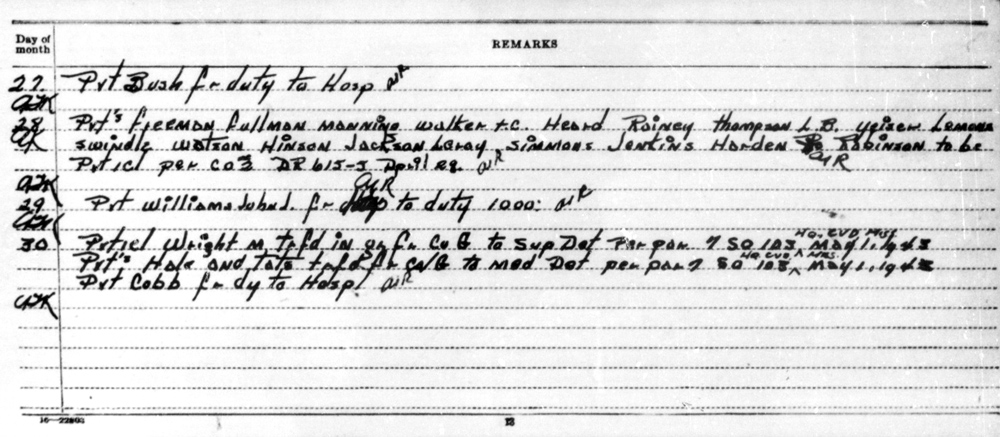 Day of
month
REMARKS
27 Pvt Bush fr duty to Hosp
28 Pvt's Freeman Fullman Manning Walker + C. Heard Rainey Thompson L.B. Yeiser Lemons
Swindle Watson Hinson Jackson Leroy Simmons Jenkins Harden Robinson to be
Pvt 1cl per CO 3 DR 615-5 April 29.
29 Pvt Williams fr to duty 1000.
30 Pvt 1cl Wright M trfd in gr fr Co G to Sup Det Per par 7 SO 103 Hq. CVD. Mss. May 1, 1943
Pvt's Hale and Tate trfd fr Co G to med Det per par 7 SO 103 Hq. CVD. Mss. May 1, 1943
Pvt Cobb fr dy to Hosp
16—22803
12